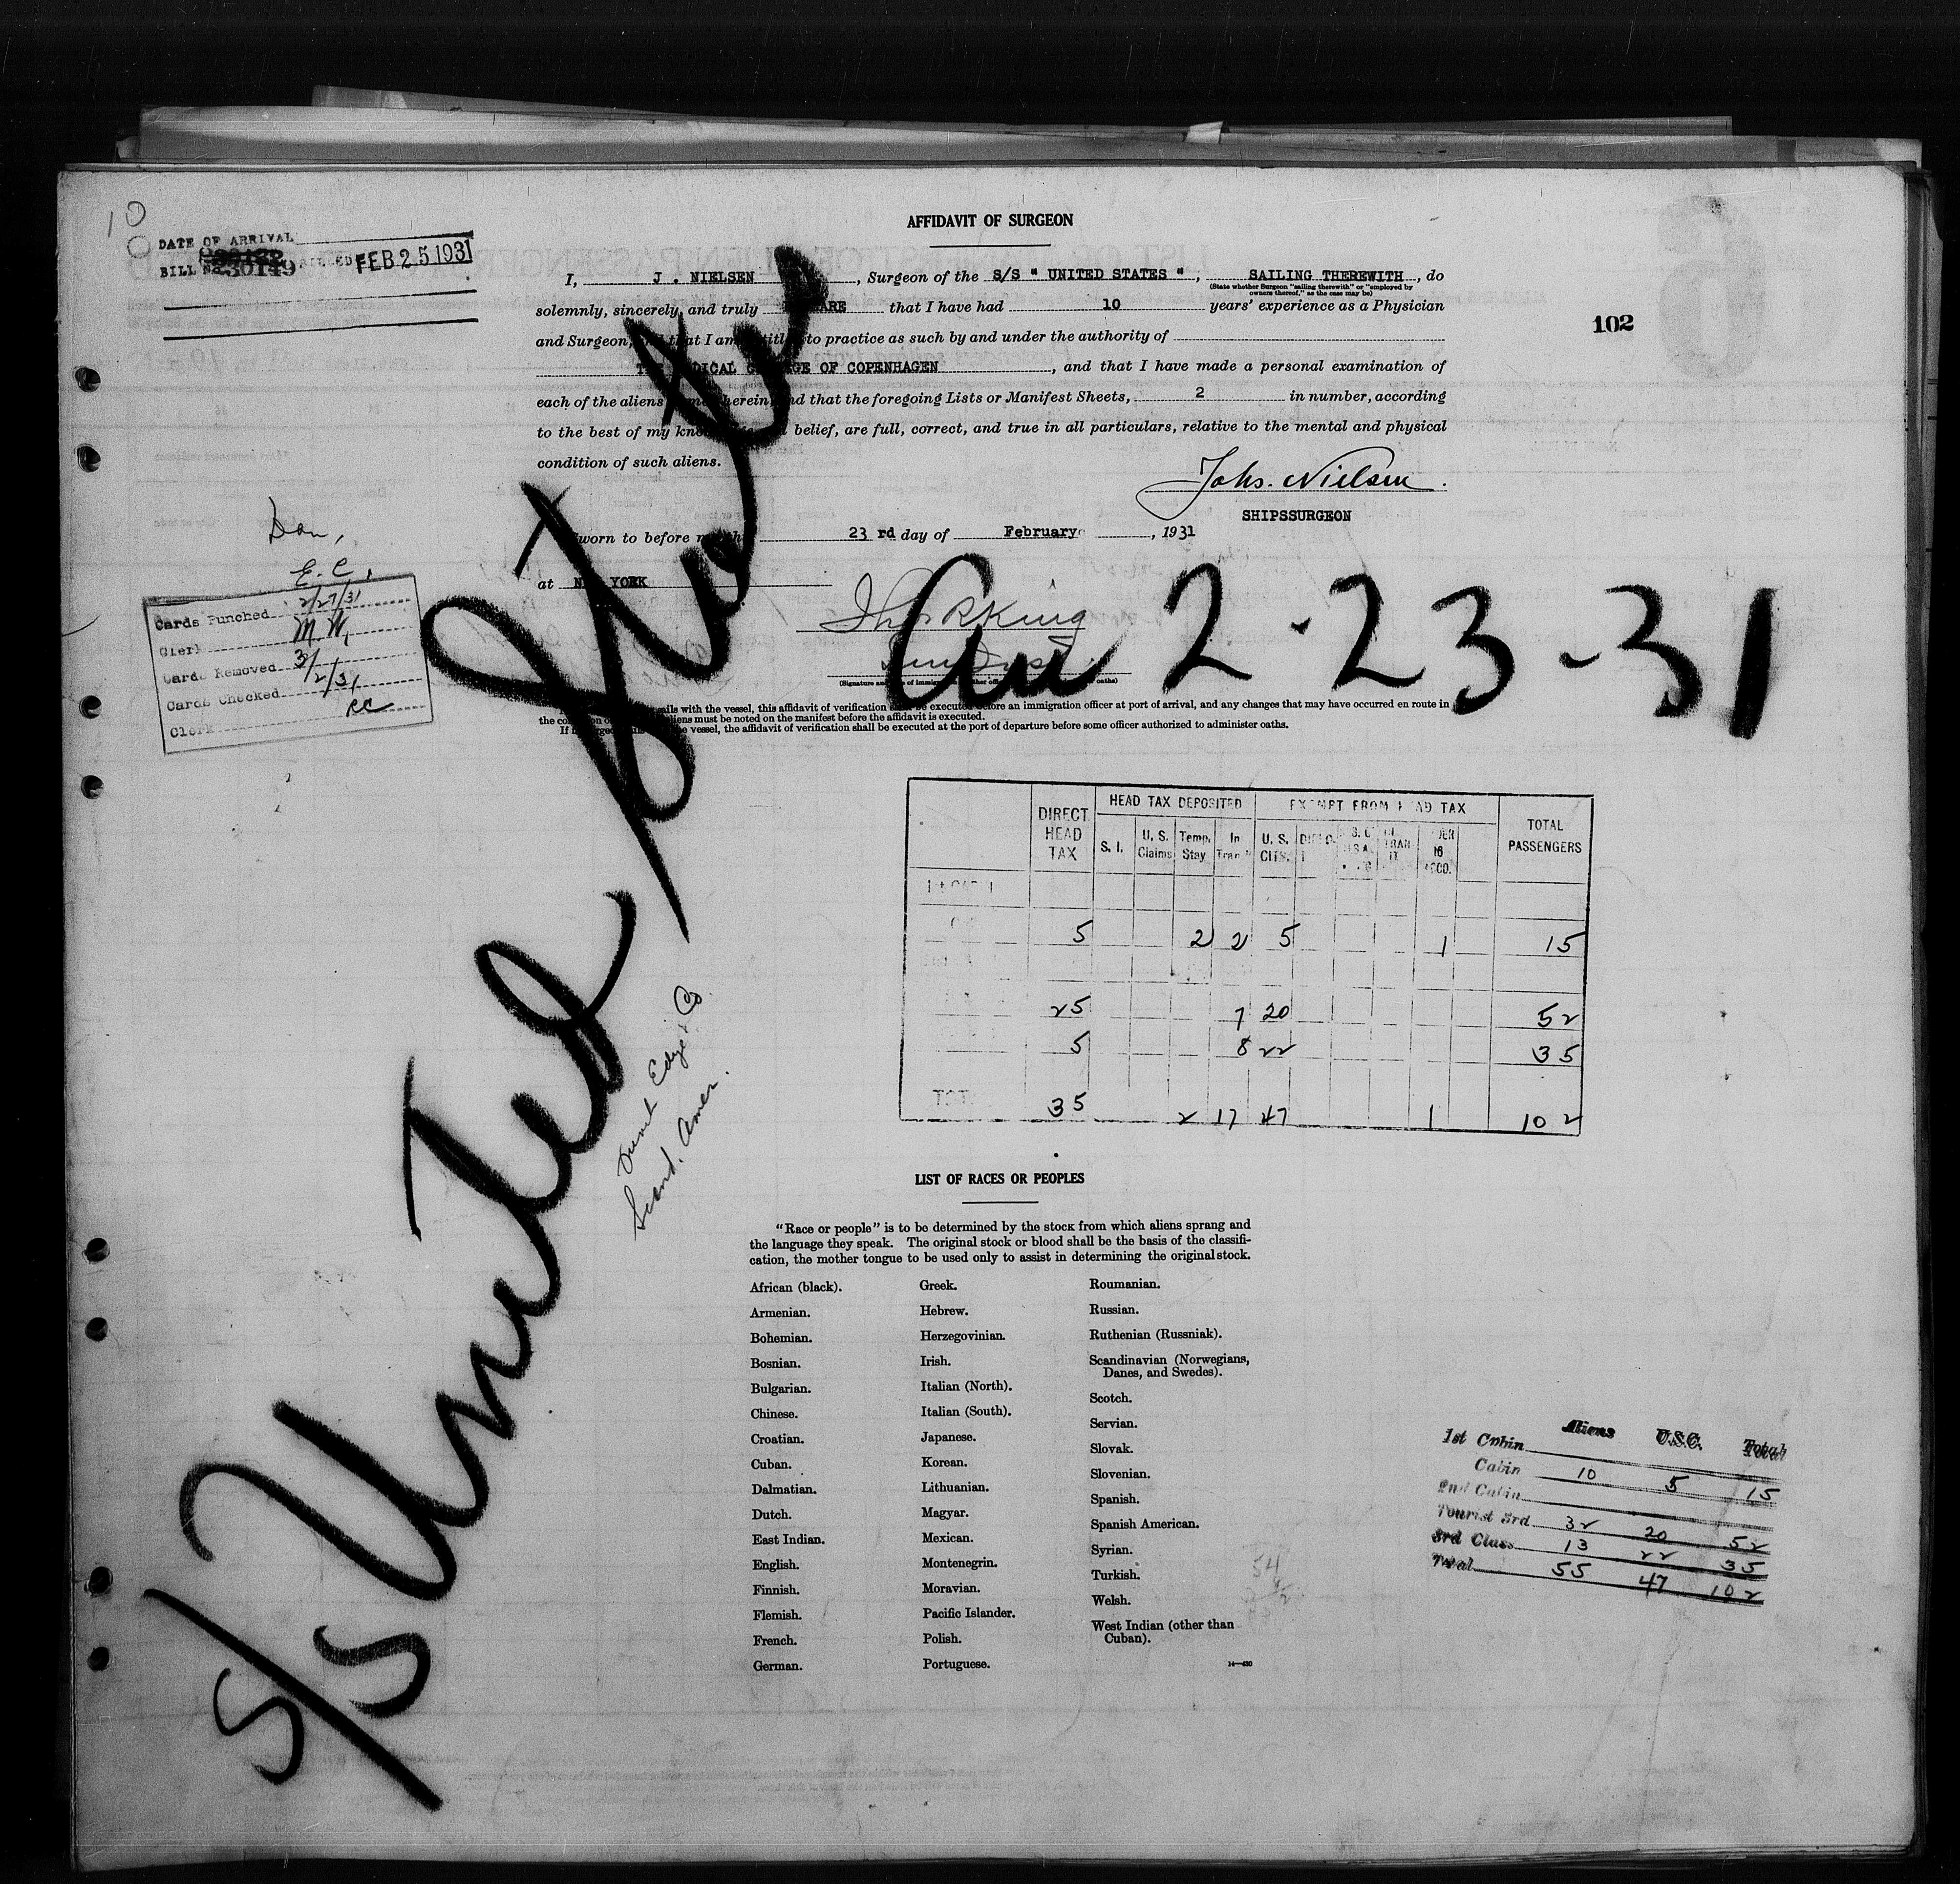 10
DATE OF ARRIVAL
BILL No. 230149 BILLED FEB 25 1931
AFFIDAVIT OF SURGEON
I, J . NIELSEN, Surgeon of the S/S " UNITED STATES ", SAILING THEREWITH, do
(State whether Surgeon "sailing therewith" or "employed by
owners thereof," as the case may be)
solemnly, sincerely, and truly that I have had 10 years' experience as a Physician
102
and Surgeon, that I am to practice as such by and under the authority of
OF COPENHAGEN, and that I have made a personal examination of
each of the aliens herein and that the foregoing Lists or Manifest Sheets, 2 in number, according
to the best of my belief, are full, correct, and true in all particulars, relative to the mental and physical
condition of such aliens.
Johs. Nielsen.
SHIPSSURGEON
Sworn to before me 23 rd day of February, 1931
at NEW YORK
S/S United States
Arr 2-23-31
Dan,
E. C.
Cards Punched 2/27/31
Clerk M. W.
Cards Removed
Cards Checked 3/2/31
Clerk
sails with the vessel, this affidavit of verification be executed before an immigration officer at port of arrival, and any changes that may have occurred en route in
the aliens must be noted on the manifest before the affidavit is executed.
the vessel, the affidavit of verification shall be executed at the port of departure before some officer authorized to administer oaths.
DIRECT HEAD TAX HEAD TAX DEPOSITED EXEMPT FROM HEAD TAX TOTAL PASSENGERS
S. I. U. S. Claims Temp. Stay In Transit U. S. CITS.
5 2 2 5 1 15
25 7 20 52
5 8 22 35
TOT. 35 2 17 47 1 102
Scand. Amer.
LIST OF RACES OR PEOPLES
"Race or people" is to be determined by the stock from which aliens sprang and
the language they speak. The original stock or blood shall be the basis of the classifi-
cation, the mother tongue to be used only to assist in determining the original stock.
African (black).
Armenian.
Bohemian.
Bosnian.
Bulgarian.
Chinese.
Croatian.
Cuban.
Dalmatian.
Dutch.
East Indian.
English.
Finnish.
Flemish.
French.
German.
Greek.
Hebrew.
Herzegovinian.
Irish.
Italian (North).
Italian (South).
Japanese.
Korean.
Lithuanian.
Magyar.
Mexican.
Montenegrin.
Moravian.
Pacific Islander.
Polish.
Portuguese.
Roumanian.
Russian.
Ruthenian (Russniak).
Scandinavian (Norwegians,
Danes, and Swedes).
Scotch.
Servian.
Slovak.
Slovenian.
Spanish.
Spanish American.
Syrian.
Turkish.
Welsh.
West Indian (other than
Cuban).
Aliens U.S.C. Total
1st Cabin
Cabin 10 5 15
2nd Cabin
Tourist 3rd 32 20 52
3rd Class 13 22 35
Total 55 47 102